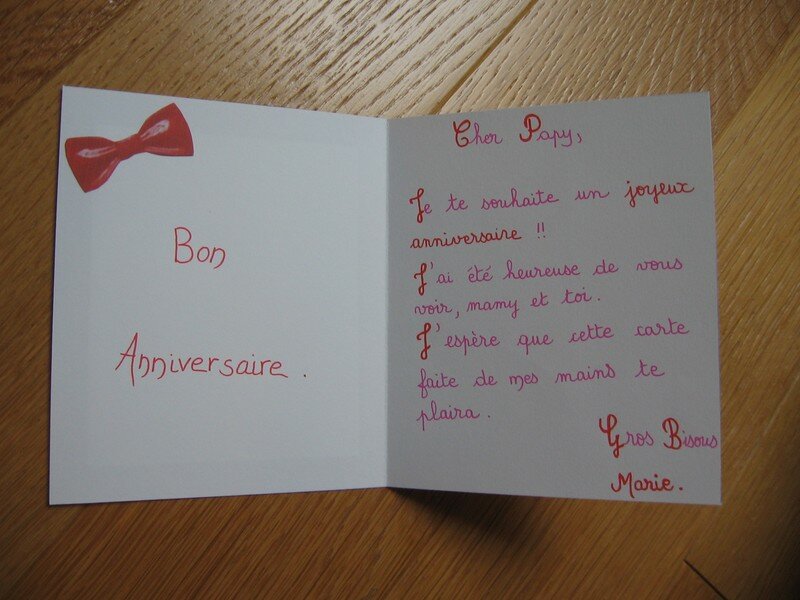 Bon
Anniversaire.
Cher Papy,
Je te souhaite un joyeux
anniversaire !!
J'ai été heureuse de vous
voir, mamy et toi.
J'espère que cette carte
faite de mes mains te
plaira.
Gros Bisous
Marie.